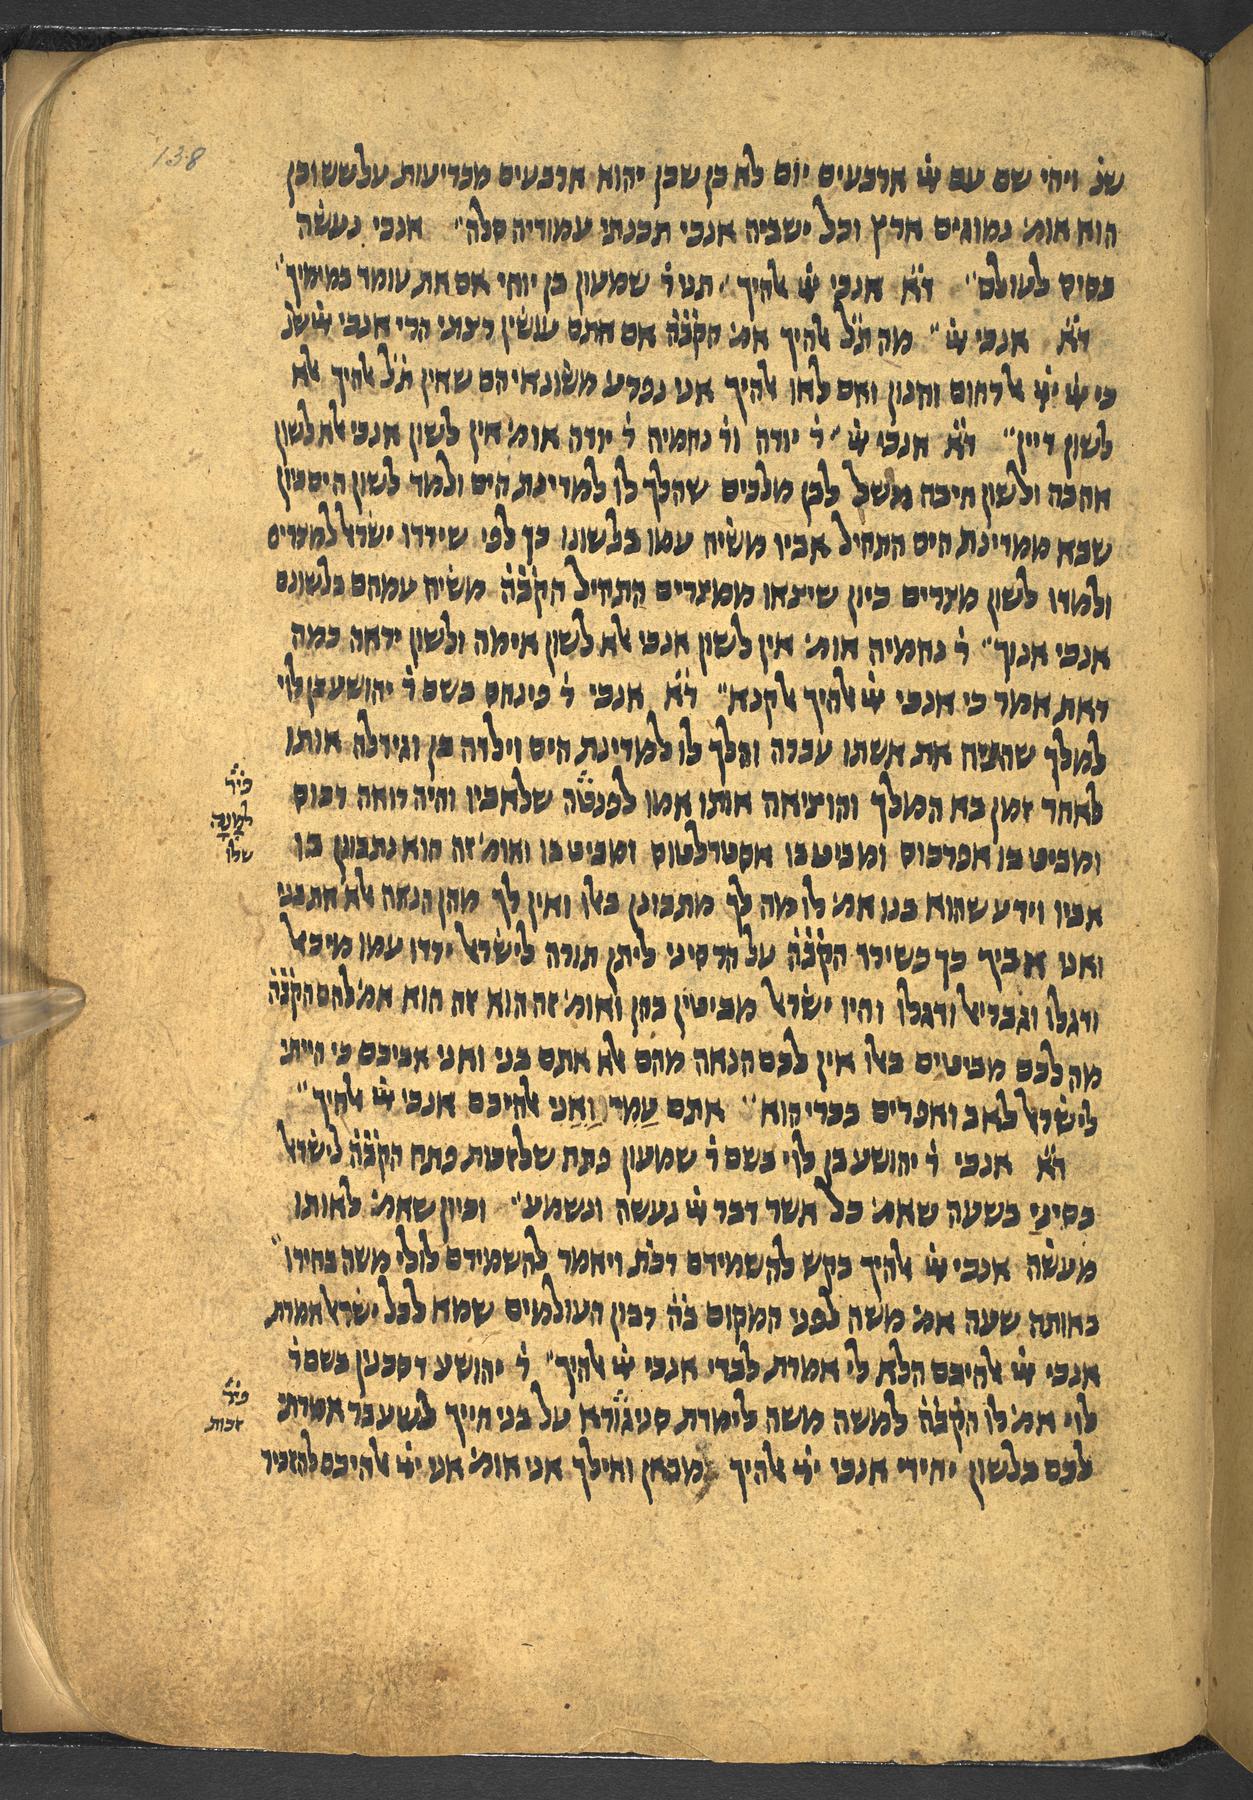 138
שנ׳ ויהי שם עם יי׳ ארבעים יום לא כן שכן יהוא ארבעים מכריעות על ששוכן
הוא אומ׳ נמוגים ארץ וכל ישביה אנכי תכנתי עמודיה סלה״ אנכי נעשה
בסיס לעולם״ ד״א אנכי יי׳ אלהיך״ תני ר׳ שמעון בן יוחי אם את עומד במימיך״
ד״א אנכי יי׳״ מה ת״ל אלהיך אמ׳ הקב״ה אם אתם עושין רצוני הרי אנכי יי׳ שנ׳
כי יי׳ יי׳ אל רחום וחנון ואם לאו אלהיך אני נפרע משונאיהם שאין ת״ל אלהיך אלא
לשון דיין״ ד״א אנכי יי׳״ ר׳ יודה ור׳ נחמיה ר׳ יודה אומ׳ אין לשון אנכי אלא לשון
אהבה ולשון חיבה משל לבן מלכים שהלך לו למדינת הים ולמד לשון היס כיון
שבא ממדינת הים התחיל אביו משיח עמו בלשונו כך לפי שירדו ישראל למצרים
ולמדו לשון מצרים כיון שיצאו ממצרים התחיל הקב״ה משיח עמהם בלשונם
אנכי אנוך״ ר׳ נחמיה אומ׳ אין לשון אנכי אלא לשון אימה ולשון יראה כמה
דאת אמר כי אנכי יי׳ אלהיך אל קנא״ ד״א אנכי ר׳ פינחס בשם ר׳ יהושע בן לוי
למלך שהניח את אשתו עברה והלך לו למדינת הים וילדה בן וגידלה אותו
לאחר זמן בא המלך והוציאה אותו אמו לפנטה שלאביו והיה רואה דכוס
ומביט בו אפרכוס ומביט בו אסטרלטוס ומביט בו ואומ׳ זה הוא נתבונן בו
אביו וידע שהוא בנו אמ׳ לו מה לך מתבונן באלו ואין לך מהן הנאה אלא את בני
ואני אביך כך כשירד הקב״ה על הר סיני ליתן תורה לישראל ירדו עמו מיכאל
ודגלו וגבריאל ודגלו והיו ישראל מביטין בהן ואומ׳ זה הוא זה הוא אמ׳ להם הקב״ה
מה לכם מביטים באלו אין לכם הנאה מהם אלא אתם בני ואני אביכם כי הייתי
לישראל לאב ואפרים בכרי הוא״ אתם עמי ואני אלהיכם אנכי יי׳ אלהיך״
ד״א אנכי ר׳ יהושע בן לוי בשם ר׳ שמעון פתח שלזכות פתח הקב״ה לישראל
בסיני בשעה שאמ׳ כל אשר דבר יי׳ נעשה ונשמע״ וכיון שאמ׳ לאותו
מעשה אנכי יי׳ אלהיך בקש להשמידם דכת׳ ויאמר להשמידם לולי משה בחירו״
באותה שעה אמ׳ משה לפני המקום ב״ה רבון העולמים שמא לכל ישראל אמרת
אנכי יי׳ אלהיכם הלא לי אמרת לבדי אנכי יי׳ אלהיך״ ר׳ יהושע דסכנין בשם ר׳
לוי אמ׳ לו הקב״ה למשה משה לימדת סניגורא על בני חייך לשעבר אמרתי
לכם בלשון יחידי אנכי יי׳ אלהיך מכאן ואילך אני אומ׳ אני יי׳ אלהיכם להזכיר
פיר׳
שלו
פיר׳
זכות